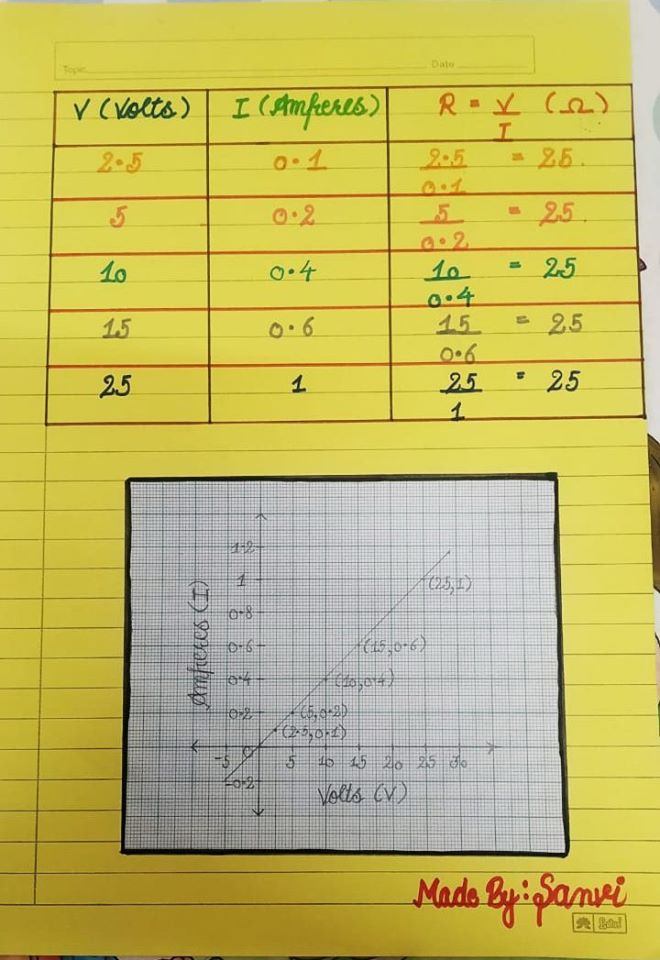 Topic Date
V (Volts) I (Amperes) R = V/I (Ω)
2.5 0.1 2.5/0.1 = 25.
5 0.2 5/0.2 = 25.
10 0.4 10/0.4 = 25
15 0.6 15/0.6 = 25
25 1 25/1 = 25
Amperes (I)
1.2
1
(25,1)
0.8
0.6
(15,0.6)
0.4
(10,0.4)
0.2
(5,0.2)
(2.5,0.1)
0
-5 5 10 15 20 25 30
-0.2
Volts (V)
Made By: Sanvi